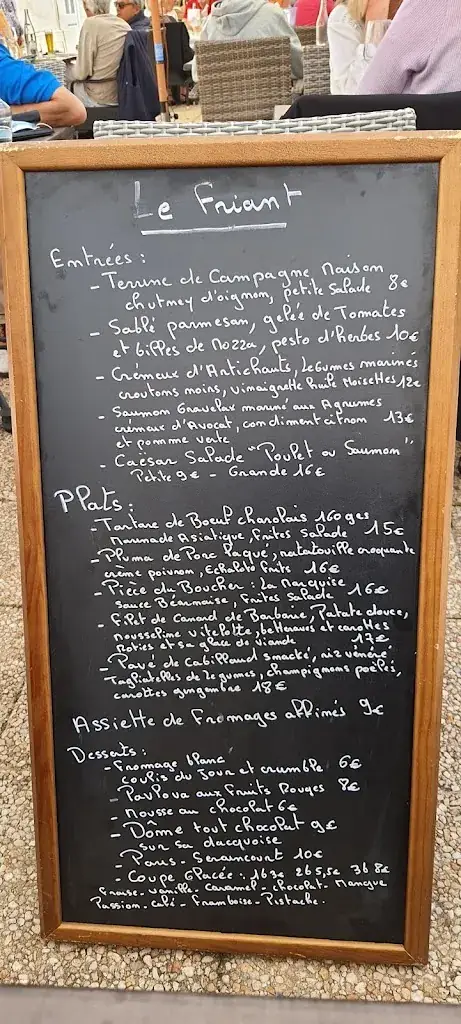 Le Friant
Entrées :
- Terrine de Campagne Maison
chutney d'oignon, petite Salade 8€
- Sablé parmesan, gelée de Tomates
et billes de Mozza, pesto d'herbes 10€
- Crémeux d'Artichauts, Legumes marinés
croutons noirs, vinaigrette huile Noisettes 12€
- Saumon Gravelax mariné aux Agrumes
crémeux d'Avocat, condiment citron 13€
et pomme verte
- Caësar Salade "Poulet ou Saumon"
Petite 9€ - Grande 16€
Plats :
- Tartare de Boeuf charolais 160 grs
Marinade Asiatique, Frites Salade 15€
- Pluma de Porc Laqué, ratatouille croquante
crème poivron, Echalote frite 16€
- Pièce du Boucher : La Marquise
Sauce Béarnaise, Frites Salade 16€
- Filet de Canard de Barbarie, Patate douce,
mousseline vitelotte, betteraves et carottes
Roties et sa glace de viande 17€
- Pavé de Cabillaud smacké, riz vénéré
Tagliatelles de Legumes, champignons poélés,
carottes gingembre 18€
Assiette de Fromages affinés 9€
Desserts :
- Fromage blanc
coulis du Jour et crumble 6€
- Pavlova aux Fruits Rouges 8€
- Mousse au chocolat 6€
- Dôme tout chocolat 9€
sur sa dacquoise
- Paris - Seraincourt 10€
- Coupe Glacée : 1b 3€ 2b 5,5€ 3b 8€
Fraise - Vanille - Caramel - Chocolat - Mangue
Passion - Café - Framboise - Pistache.